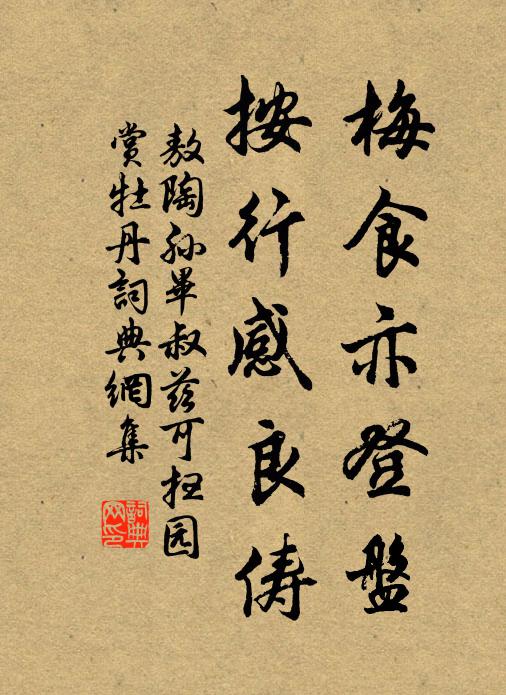 梅食亦登盤
按行感良俦
敖陶孙畢叔茲可拄园
賞牡丹詞典網集
詞典网印